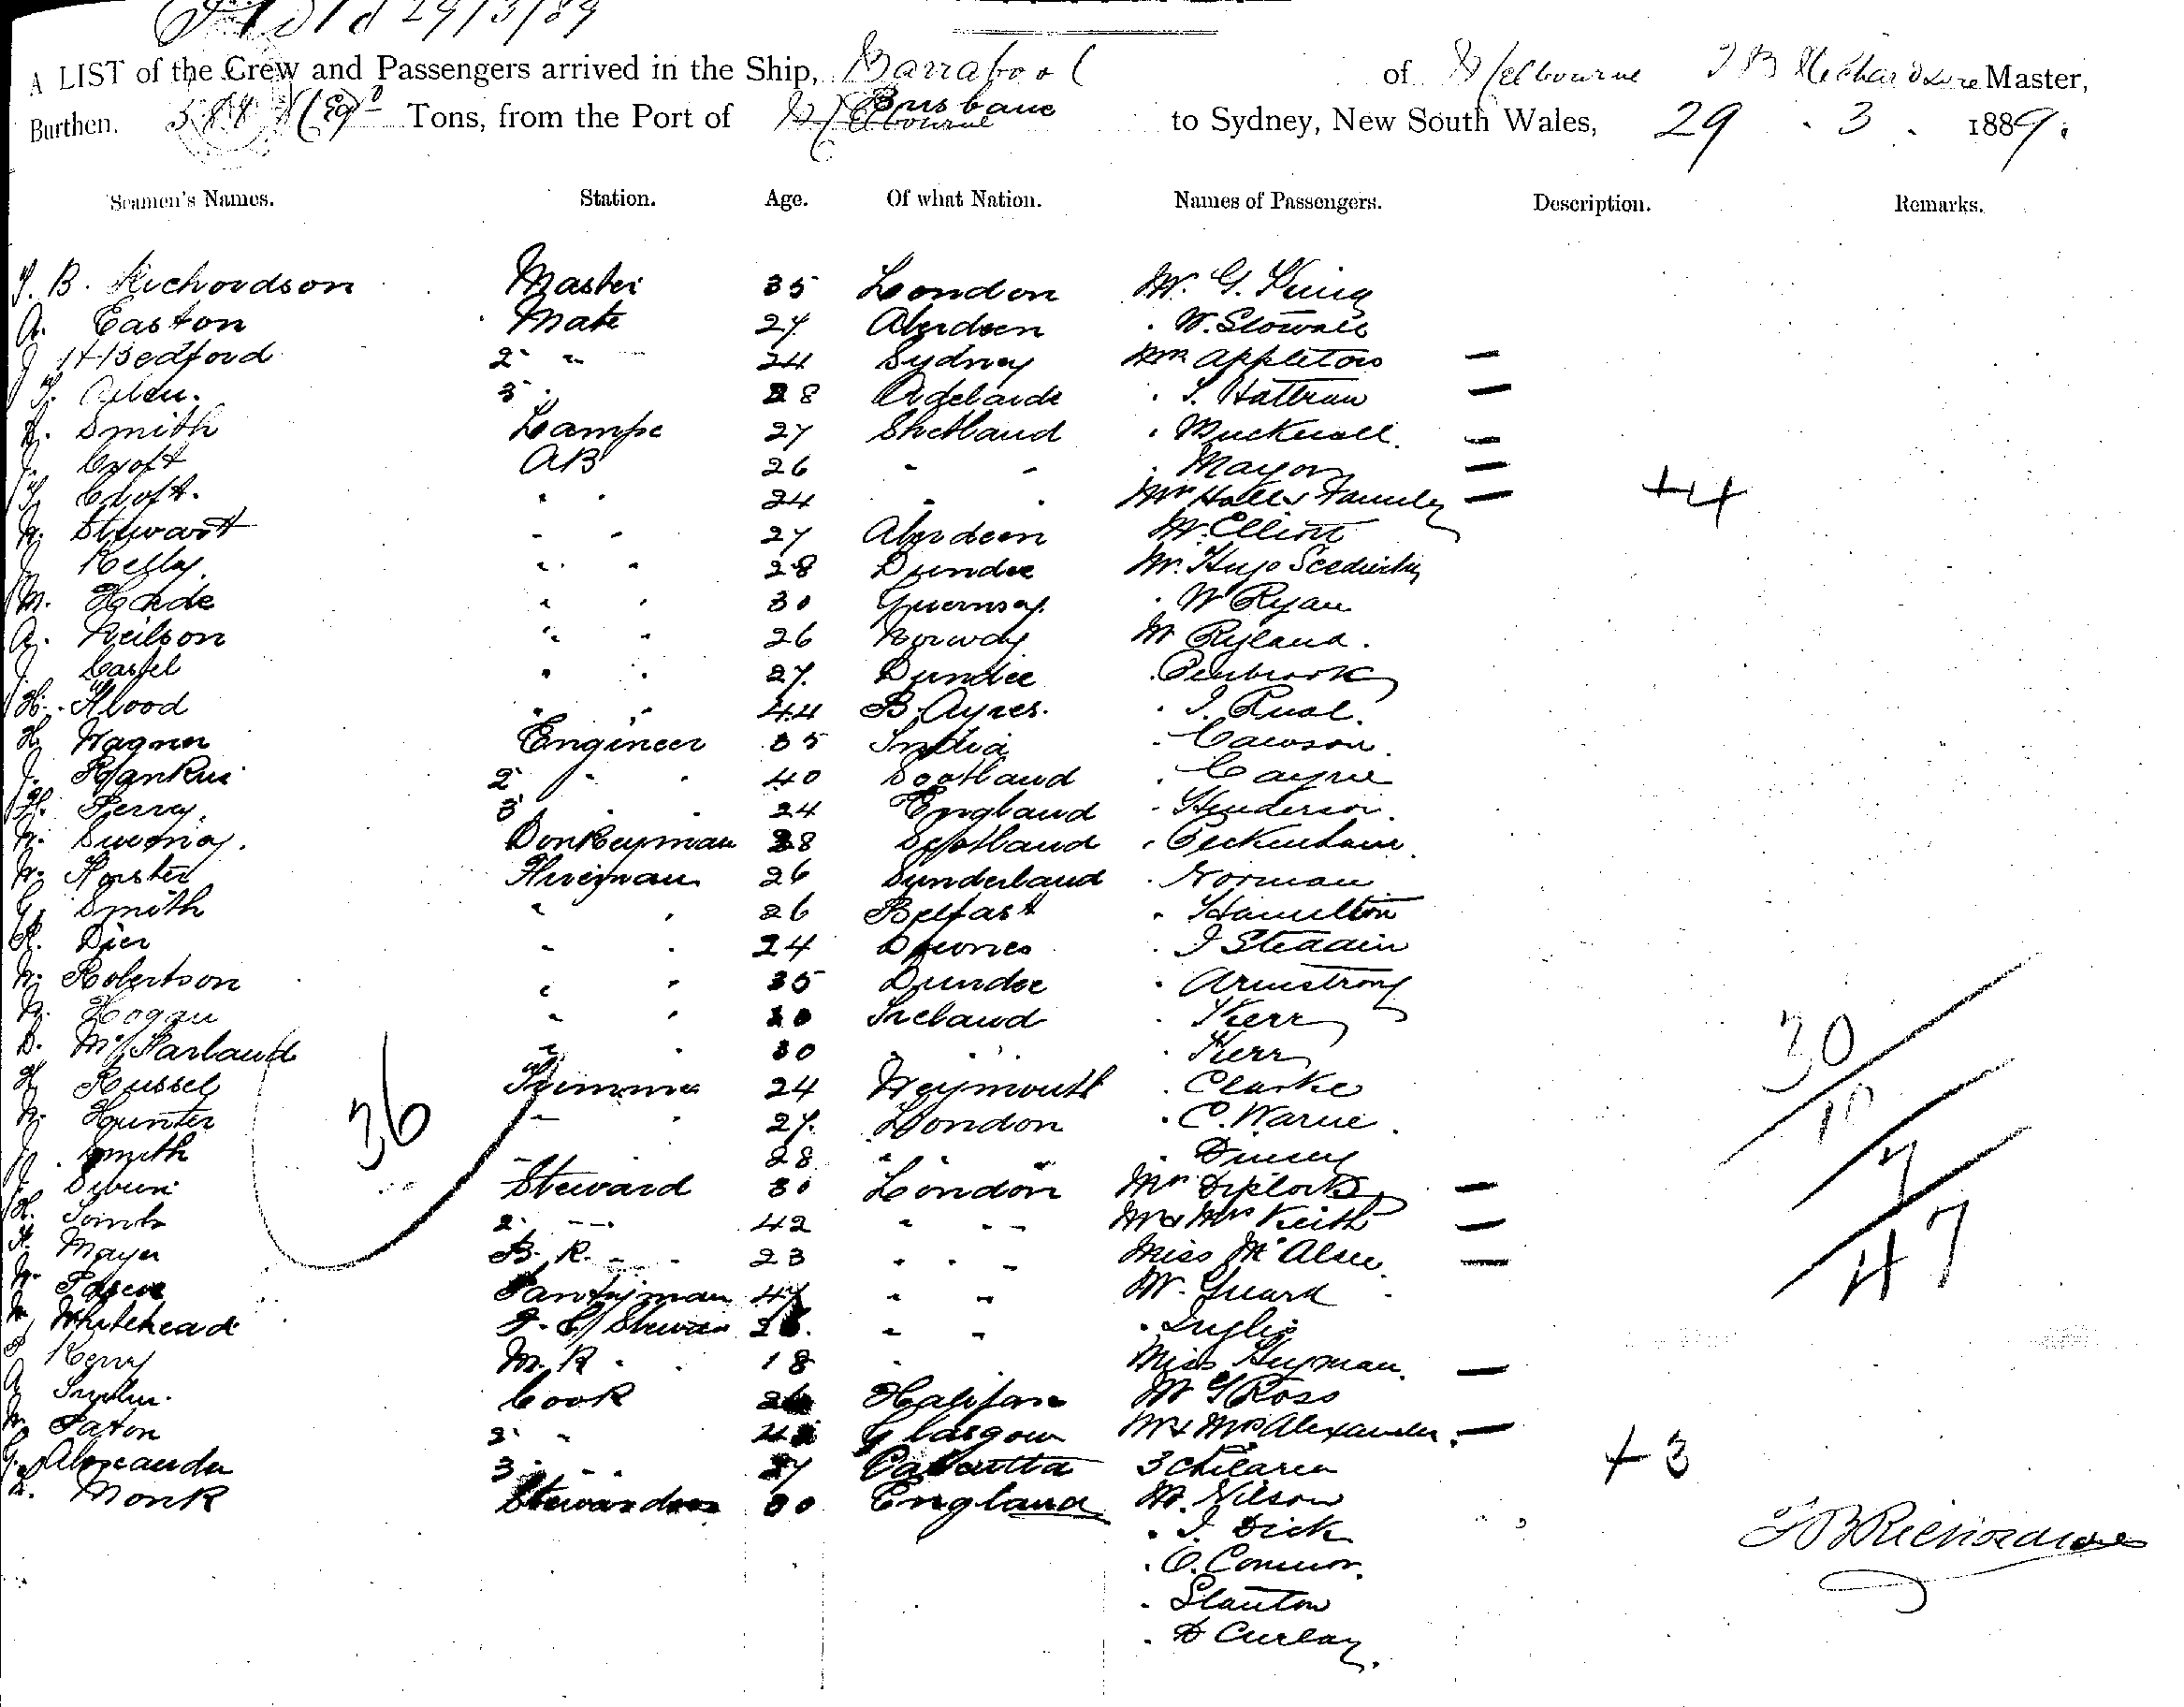 29/3/89
A LIST of the Crew and Passengers arrived in the Ship, Barrabool of Melbourne T B Richardson Master,
Burthen. Tons, from the Port of Melbourne Brisbane to Sydney, New South Wales, 29 . 3 . 1889.
Seamen's Names. Station. Age. Of what Nation. Names of Passengers. Description. Remarks.
T. B. Richardson Master 35 London Mr. G. King
A. Easton Mate 27 Aberdeen . W. Stowall
J H Bedford 2 " 24 Sydney Mrs Appleton —
T. Allen. 3 28 Adelaide —
Smith Lamps 27 Shetland . Mucknall. —
J. Croft AB 26 " " . Mayor —
T. Croft. " " 24 " " Mrs Hall & Family — +4
W. Stewart " " 27 Aberdeen Mr. Elliott
J. Kelly. " " 28 Dundee Mr. Hugo
M. Hade " " 30 Guernsey. . W Ryan
A. Neilson " " 26 Norway Mr Ryland.
J. Cassel " " 27. Dundee . Penbrook
H. Flood " " 44 B. Ayres.
H. Wagner Engineer 35 India . Cawson.
J. Rankin 2 " " 40 Scotland . Cayne
H. Perry. 3 " " 24 England . Henderson.
W. Donkeyman 28 Scotland . Peckenham.
W. Forster Fireman 26 Sunderland . Norman
G. Smith " " 26 Belfast . Hamilton
Dier " " 24
W. Robertson " " 35 Dundee . Armstrong
M. Hogan " " 30 Ireland . Kerr
D. McFarland " " 30 " " . Kerr 30
H. Russel Trimmer 24 Weymouth . Clarke
W. Hunter " " 27. London . C. Warne. 10
J. Smith 36 " 28 " " 7
J. Steward 30 London Mrs Diplock —
2 " 42 " " Mr & Mrs Keith — 47
Mayer B. R. " 23 " " Miss —
W. Pantryman 47 " " Mr. Guard
W. Whitehead " " . Inglis
Kerry M. R. " 18 " Miss Hyman. —
A Cook Halifax Mr G Ross
W. Paton 2 " Glasgow Mr & Mrs Alexander. —
G. Alexander 3 " " 27 Calcutta 3 Children + 3
Monk Stewardess 30 England Mr. Nilson
. J. Dick T B Richardson
. O. Connor.
. Stanton
. D Curlay.